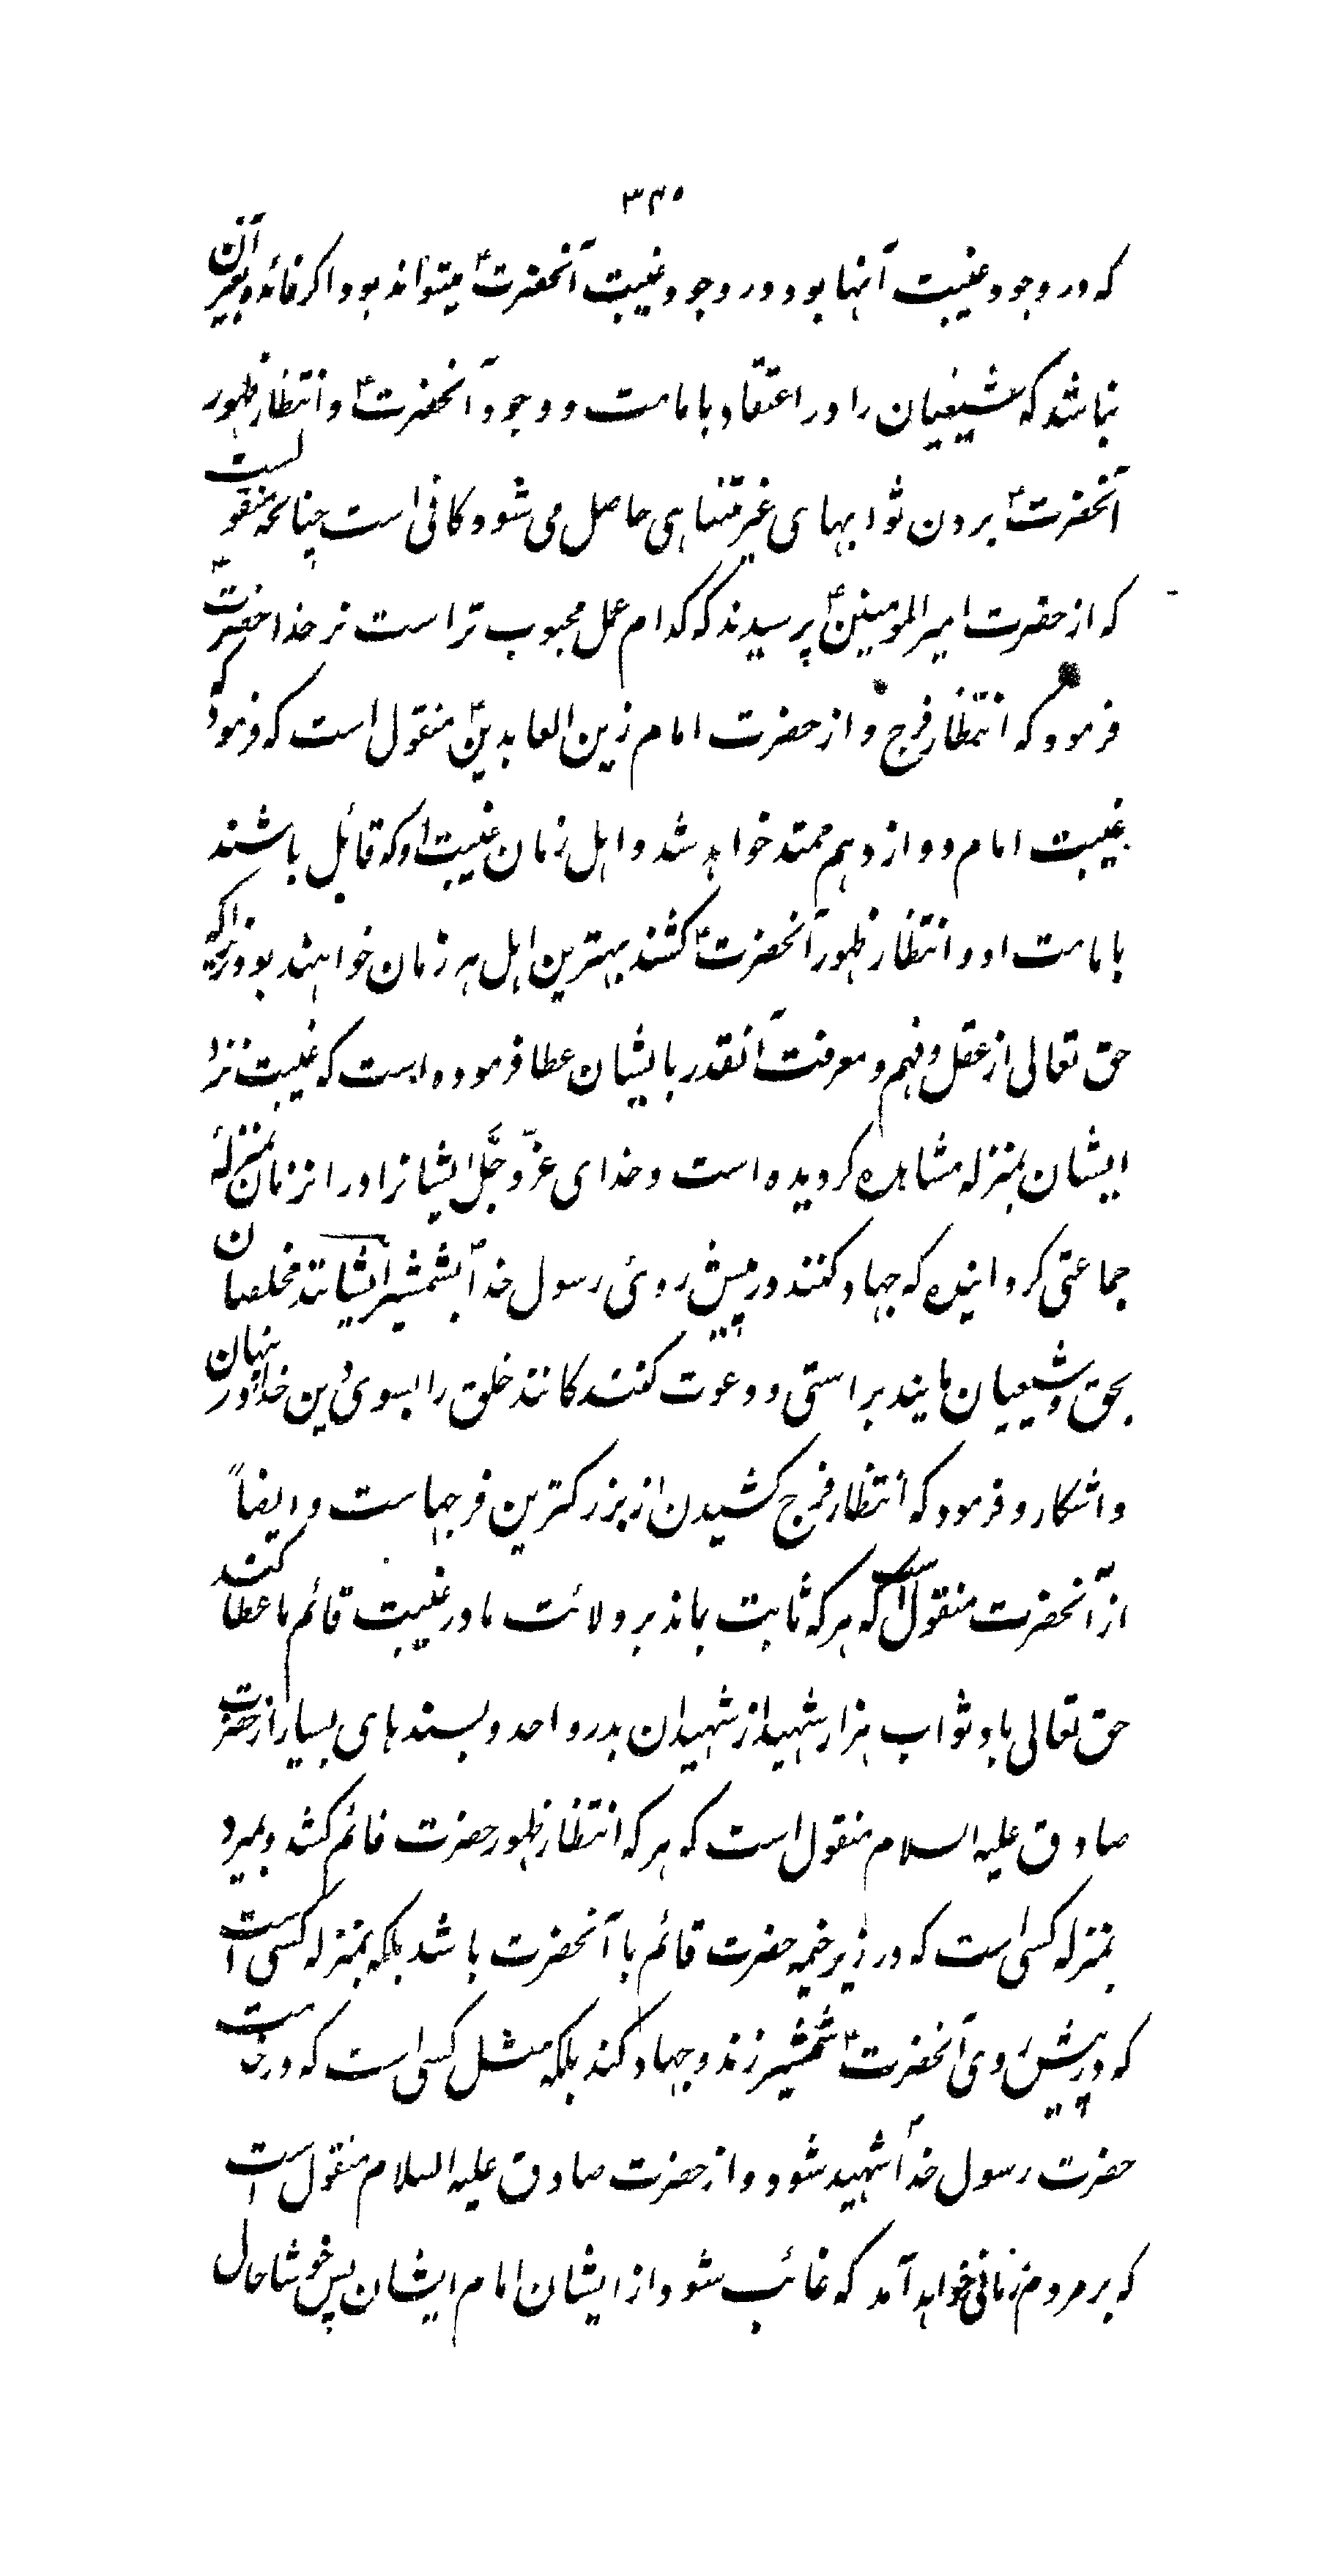 ۳۴۵
که در وجود غیبت آنها بود در وجود غیبت آنحضرت؏ میتواند بود اکر فائده بغیر آن
نباشد که شیعیان را در اعتقاد بامامت و وجود آنحضرت؏ و انتظار ظهور
آنحضرت؏ بردن ثوابهای غیر متناهی حاصل می شود کافی است چنانچه منقولست
که از حضرت امیر المومنین؏ پرسیدند که کدام عمل محبوب تر است نزد خدا حضرت؏
فرمود که انتظار فرج و از حضرت امام زین العابدین؏ منقول است که فرمود که
غیبت امام دوازدهم ممتد خواهد شد و اهل زمان غیبت او که قائل باشند
بامامت او و انتظار ظهور آنحضرت؏ کشند بهترین اهل هر زمان خواهند بود زیرا که
حق تعالی از عقل و فهم و معرفت آنقدر بایشان عطا فرموده است که غیبت نزد
ایشان بمنزله مشاهده کردیده است و خدای عزّ و جلّ ایشانرا در انزمان بمنزلهٔ
جماعتی کردانیده که جهاد کنند در پیش روئ رسول خداؐ بشمشیر ایشانند مخلصان
بحق و شیعیان مایند براستی و دعوت کنندکانند خلق را بسوئ دین خدا در پنهان
و اشکار و فرمود که انتظار فرج کشیدن از بزرکترین فرجهاست و ایضاً
از آنحضرت منقول است که هر که ثابت بماند بر ولائت ما در غیبت قائم ما عطا کند
حق تعالی باو ثواب هزار شهید از شهیدان بدر و احد و بسند های بسیار از حضرت
صادق علیه السلام منقول است که هر که انتظار ظهور حضرت قائم کشد و بمیرد
بمنزله کسی است که در زیر خیمه حضرت قائم با آنحضرت باشد بلکه بمنزله کسی است
که در پیش روی آنحضرت؏ شمشیر زند و جهاد کند بلکه مثل کسی است که در خدمت
حضرت رسول خداؐ شهید شود و از حضرت صادق علیه السلام منقول است
که بر مردم زمانی خواهد آمد که غائب شود از ایشان امام ایشان پس خوشا حال